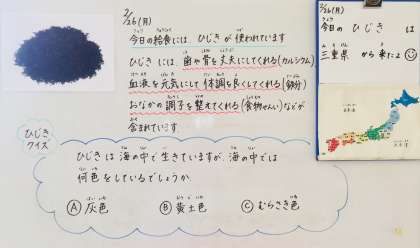 2/26(月)
今日の給食には、ひじきが使われています
ひじきには、歯や骨を丈夫にしてくれる(カルシウム)
血液を元気にして体調を良くしてくれる(鉄分)
おなかの調子を整えてくれる(食物せんい)などが
含まれています。
ひじき
クイズ
ひじきは海の中で生きていますが、海の中では
何色をしているでしょうか。
Ⓐ灰色 Ⓑ黄土色 Ⓒむらさき色
2/26(月)
今日のひじきは
三重県から来たよ